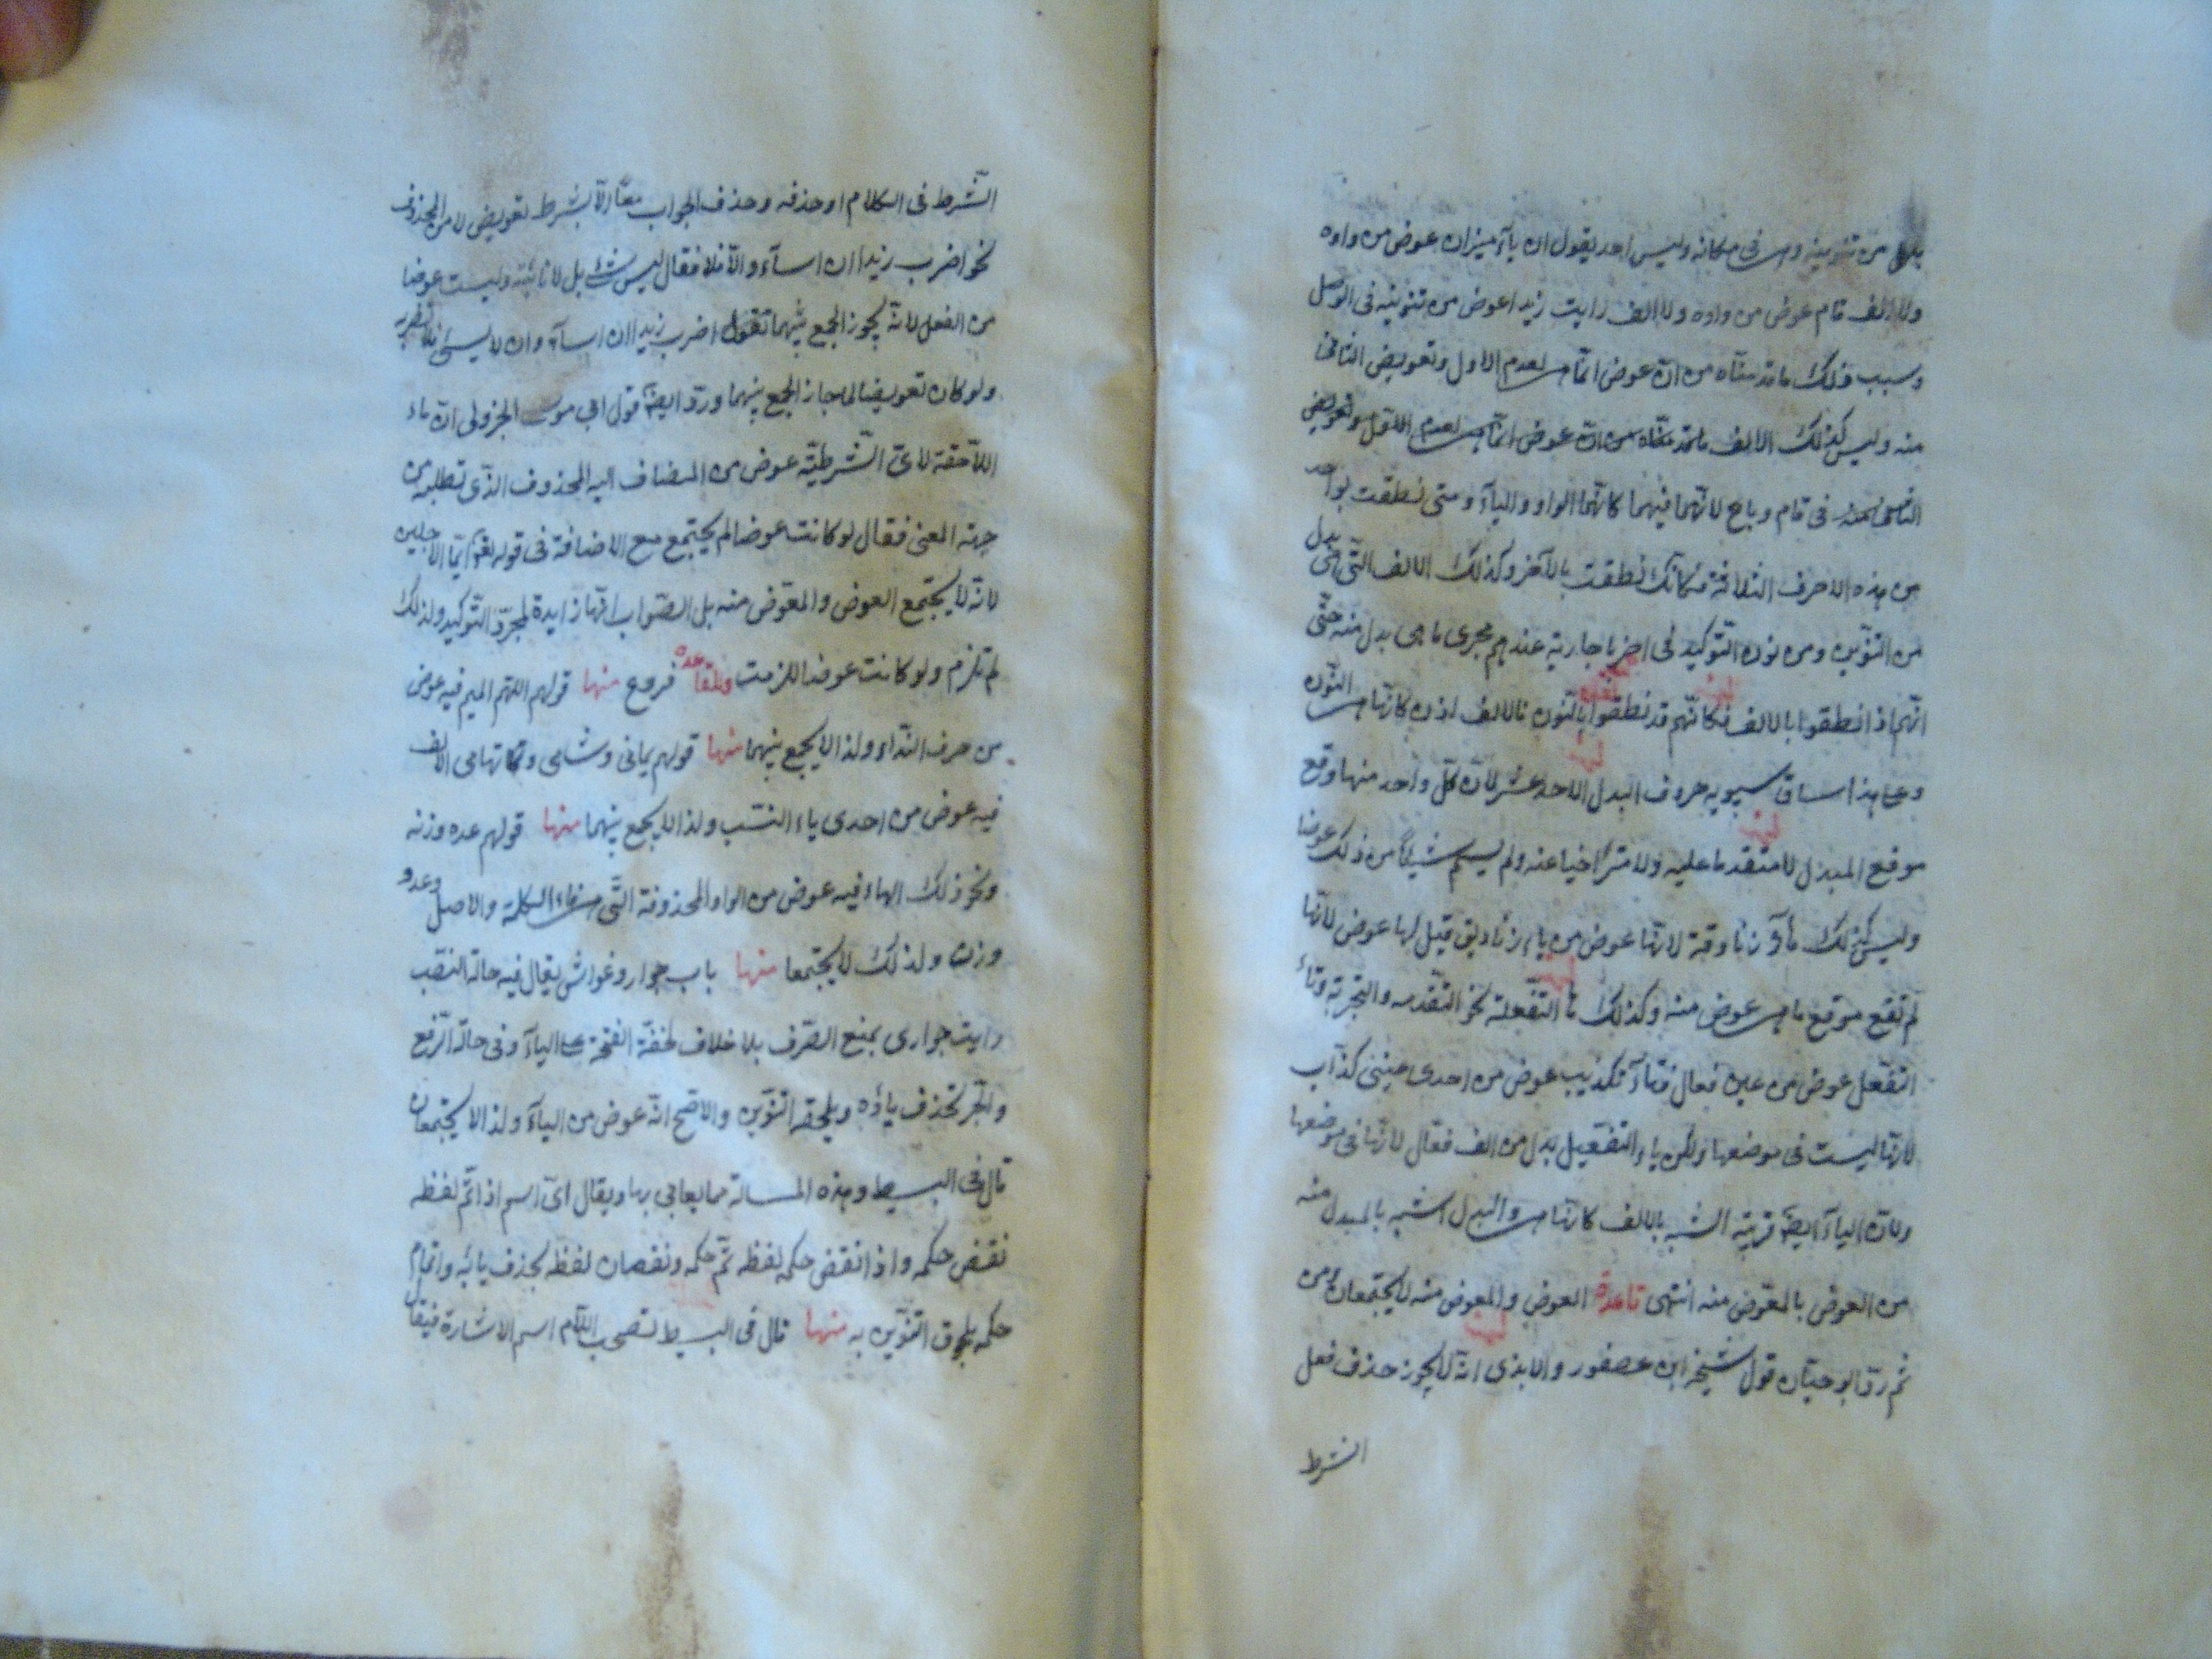 بدل من تنوينه وهي في مكانه وليس احد يقول ان يآء ميزان عوض من واوه
ولا الف قام عوض من واوه ولا الف رايت زيدا عوض من تنوينه في الوصل
وسبب ذلك ما قدمناه من انّ عوض انّما هي لعدم الاول وتعويض الثاني
منه وليس كذلك الالف ما قدمنّاه من انّ عوض انّما هي لعدم الاول وتعويض
الثاني منه في قام وباع لانّهما فيهما كانّهما الواو واليآء ومتى نطقت بواحد
من هذه الاحرف الثلاثة فكانّك نطقت بالآخر وكذلك الالف التّي هي بدل
من التنوّين ومن نون التّوكيد في اضربا جارية عندهم مجرى ما هي بدل منه حتّى
انّهم اذا نطقوا بالالف فكانّهم قد نطقوا بالنّون فالالف اذن كانّها هي النّون
وعلى هذا ساق سيبويه حروف البدل الاحد عشر لان كلّ واحد منها وقع
موقع المبدل لا متقدما عليه ولا متراخيا عنه ولم يسم شيئًا من ذلك عوضا
وليس كذلك هآء زنادقة لانّها عوض من ياء زناديق قيل لها عوض لانّها
لم تقع موقع ما هي عوض منه وكذلك تآ التفّعلة نحو التقّدمه والتجربة وتآء
التفّعل عوض من عين فعال فتآء تكذيب عوض من احدى عيني كذّاب
لانّها ليست في موضعها ولكن ياء التفعّيل بدل من الف فعال لانّها في موضعها
ولان اليآء ايضا قريبة الشبه بالالف كانّها هي والبدل اشبه بالمبدل منه
من العوض بالمعوّض منه انتهى قاعدة العوض والمعوض منه لا يجتمعان ومن
ثم ردّ ابو حيّان قول شيخه ابن عصفور والابذي انه لا يجوز حذف فعل
الشرط
الشّرط في الكلام او حذفه وحذف الجواب معًا الّا بشرط تعويض لا من المحذوف
نحو اضرب زيدا ان اسآء والّا فلا فقال ليس بشئ بل لا نائبة وليست عوضا
من الفعل لانّه يجوز الجمع بينهما تقول اضرب زيدا ان اسآء وان لا يسئ فلا تضربه
ولو كان تعويضا لما جاز الجمع بينهما وردّ ايضا قول ابي موسى الجزولي انّ ماء
اللّاحقة لايّ الشّرطيّة عوض من المضاف اليه المحذوف الذّي تطلبه من
جهة المعنى فقال لو كانت عوضا لم يجتمع مع الاضافة في قوله تعالى ايّما الاجلين
لانه لا يجتمع العوض والمعوّض منه بل الصّواب انّها زايدة لمجرّد التّوكيد ولذلك
لم تلزم ولو كانت عوضا للزمت وللقاعدة فروع منها قولهم اللهّم الميم فيه عوض
من حرف النّداء ولذا لا يجمع بينهما منها قولهم يماني وشامي وتهامي الالف
فيه عوض من احدى ياء النسّب ولذا لا يجمع بينهما منها قولهم عده وزنه
ونحو ذلك الهاء فيه عوض من الواو المحذوفة التّي هي فاء الكلمة والاصل وعد و
وزن ولذلك لا يجتمعا منها باب جوار وغواش يقال فيه حالة النصّب
رايت جواري بمنع الصّرف بلا خلاف لخفّة الفتحة على اليآء وفي حالة الرّفع
والجّر تحذف ياؤه ويلحقه التنوّين والاصّح انّه عوض من اليآء ولذا لا يجتمعان
قال في البسيط وهذه المسالة مما يعايى بها ويقال ايّ اسم اذا تمّ لفظه
نقض حكمه واذا نقض حكم لفظه تمّ حكمه ونقصان لفظه بحذف يائه واتمام
حكمه بلحوق التنوّين به منها قال في البسيط تصحب اللّام اسم الاشارة فيقال